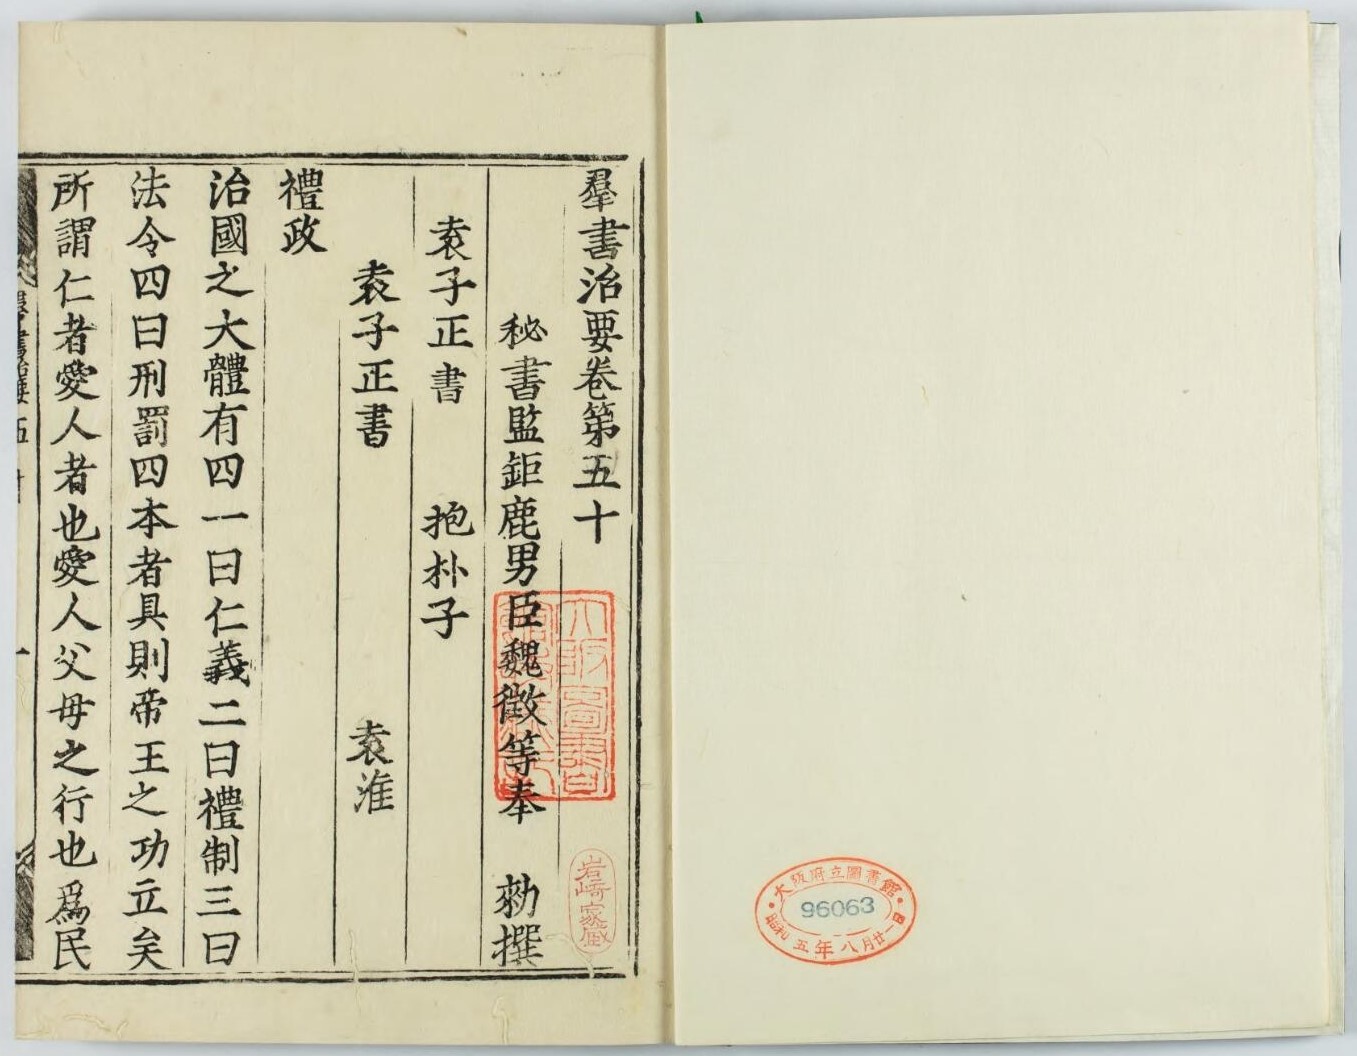 大阪府立圖書館
96063
昭和五年八月廿一日
羣書治要卷第五十
秘書監鉅鹿男臣魏徵等奉 勑撰
袁子正書 抱朴子
袁子正書 袁淮
禮政
治國之大體有四一曰仁義二曰禮制三曰
法令四曰刑罰四本者具則帝王之功立矣
所謂仁者愛人者也愛人父母之行也爲民
岩崎家蔵